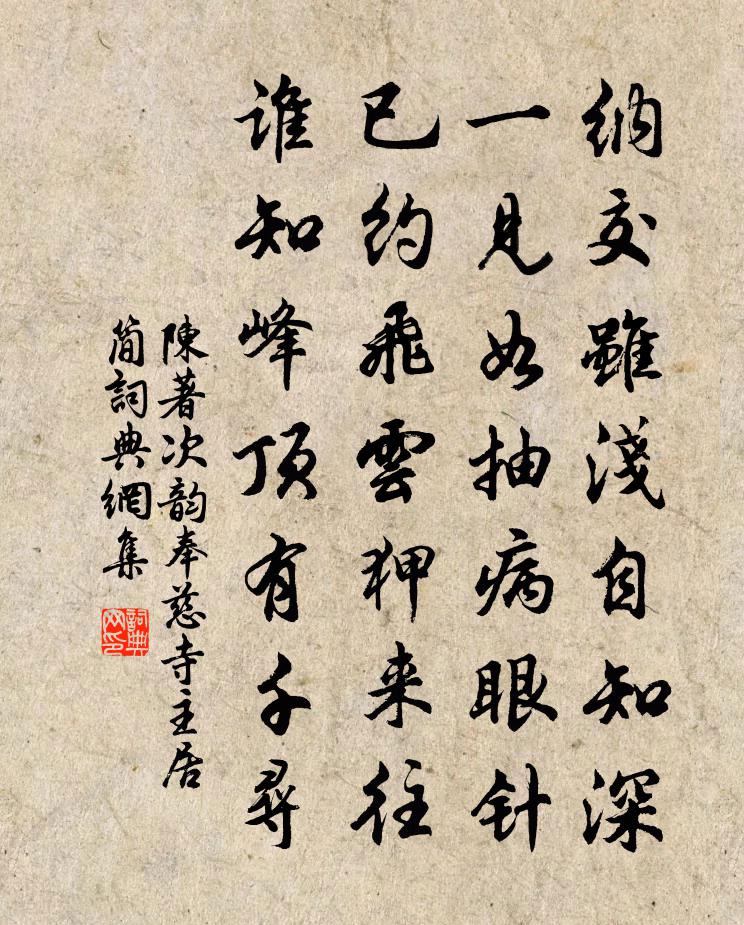 納交雖淺自知深
一見如抽病眼针
已約飛雲狎来往
誰知峰顶有千尋
陳著次韵奉慈寺主居
簡詞典網集
詞典网印